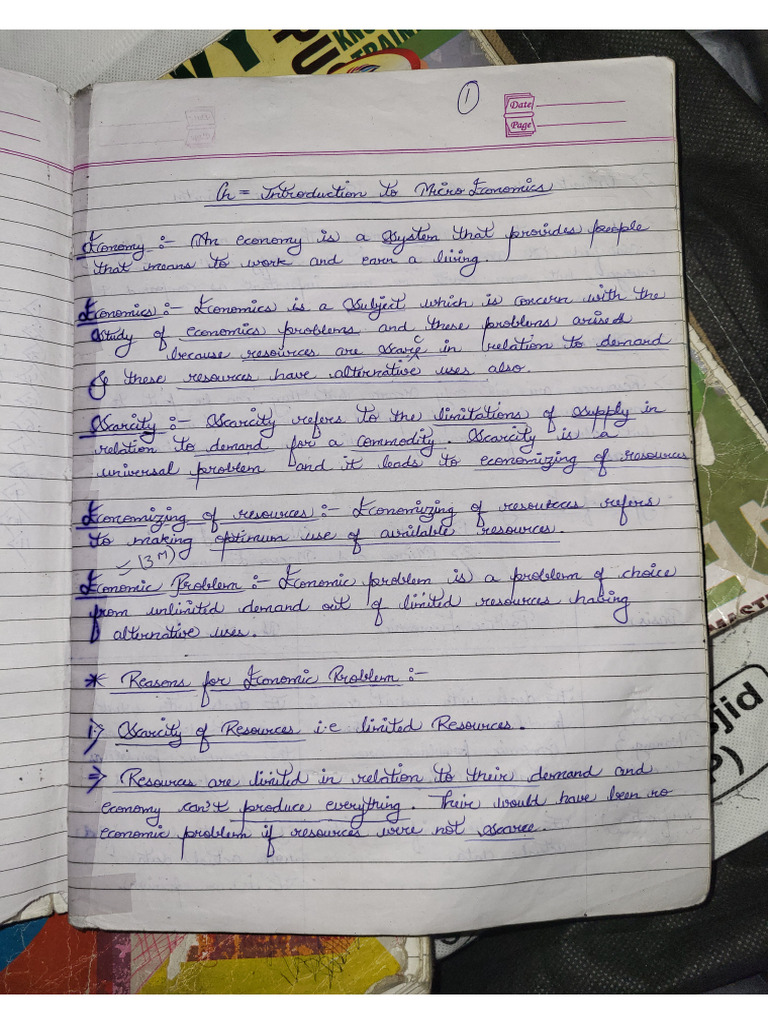 VY
KNO
TRAINI
1
Date
Page
Ch = Introduction to Micro Economics
Economy :- An economy is a system that provides people
that means to work and earn a living.
Economics :- Economics is a Subject which is concern with the
study of economics problems and these problems arised
because resources are scarce in relation to demand
& these resources have alternative uses also.
Scarcity :- Scarcity refers to the limitations of supply in
relation to demand for a commodity. Scarcity is a
universal problem and it leads to economizing of resources
Economizing of resources :- Economizing of resources refers
to making optimum use of available resources.
(3M)
Economic Problem :- Economic problem is a problem of choice
from unlimited demand out of limited resources having
alternative uses.
* Reasons for Economic Problem :-
i) Scarcity of Resources i.e limited Resources.
⇒ Resources are limited in relation to their demand and
economy can't produce everything. Their would have been no
economic problem if resources were not scarce.
jid
P)